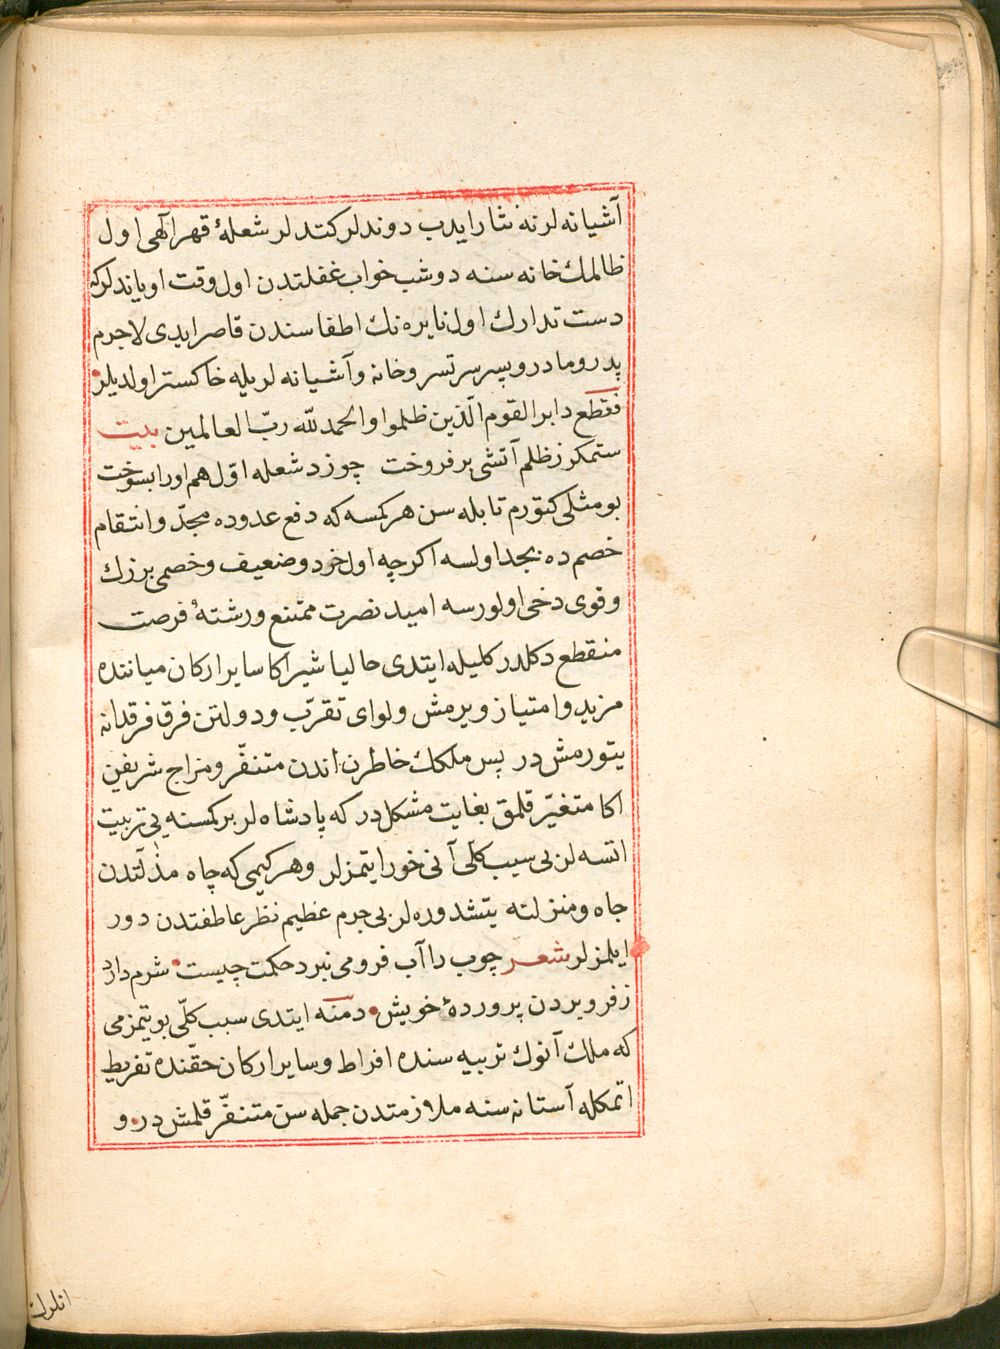 آشیانه لرنه نثار ایدب دوندلر کتدلر شعلۀ قهر الٓهی اول
ظالمك خانه سنه دوشب خواب غفلتدن اول وقت اویاندلرکه
دست تدارك اول نایره نك اطفاسندن قاصر ایدی لاجرم
پدر و مادر و پسر سرتسر و خانه و آشیانه لریله خاکستر اولدیلر
فقطع دابر القوم الّذین ظلموا والحمد للّه ربّ العالمین بیت
ستمکر ز ظلم آتشی بر فروخت چو زد شعله اوّل هم اورا بسوخت
بو مثلی کتوردم تا بله سن هر کمسه که دفع عدوده مجدّ و انتقام
خصم ده بجد اولسه اکرچه اول خرد و ضعیف و خصمی بزرك
و قوی دخی اولورسه امید نصرت ممتنع و رشتۀ فرصت
منقطع دکلدر کلیله ایتدی حالیا شیر اکا سایر ارکان میاننده
مزید و امتیاز ویرمش و لوای تقرّب و دولتن فرق فرقدانه
یتورمش در پس ملکك خاطرن اندن متنفّر و مزاج شریفن
اکا متغیّر قلمق بغایت مشکل در که پادشاه لر بر کمسنه یی تربیت
اتسه لر بی سبب کلّی آنی خور ایتمزلر و هر کیمی که چاه مذلّتدن
جاه و منزلته یتشدوره لر بی جرم عظیم نظر عاطفتدن دور
ایلمزلر شعر چوب را آب فرو می نبرد حکمت چیست شرم دارد
ز فرو بردن پروردۀ خویش دمنه ایتدی سبب کلّی بو یتمزمی
که ملك آنوك تربیه سنده افراط و سایر ارکان حقّنده تفریط
اتمکله آستانه سنه ملازمتدن جمله سن متنفّر قلمش در و
انلرك